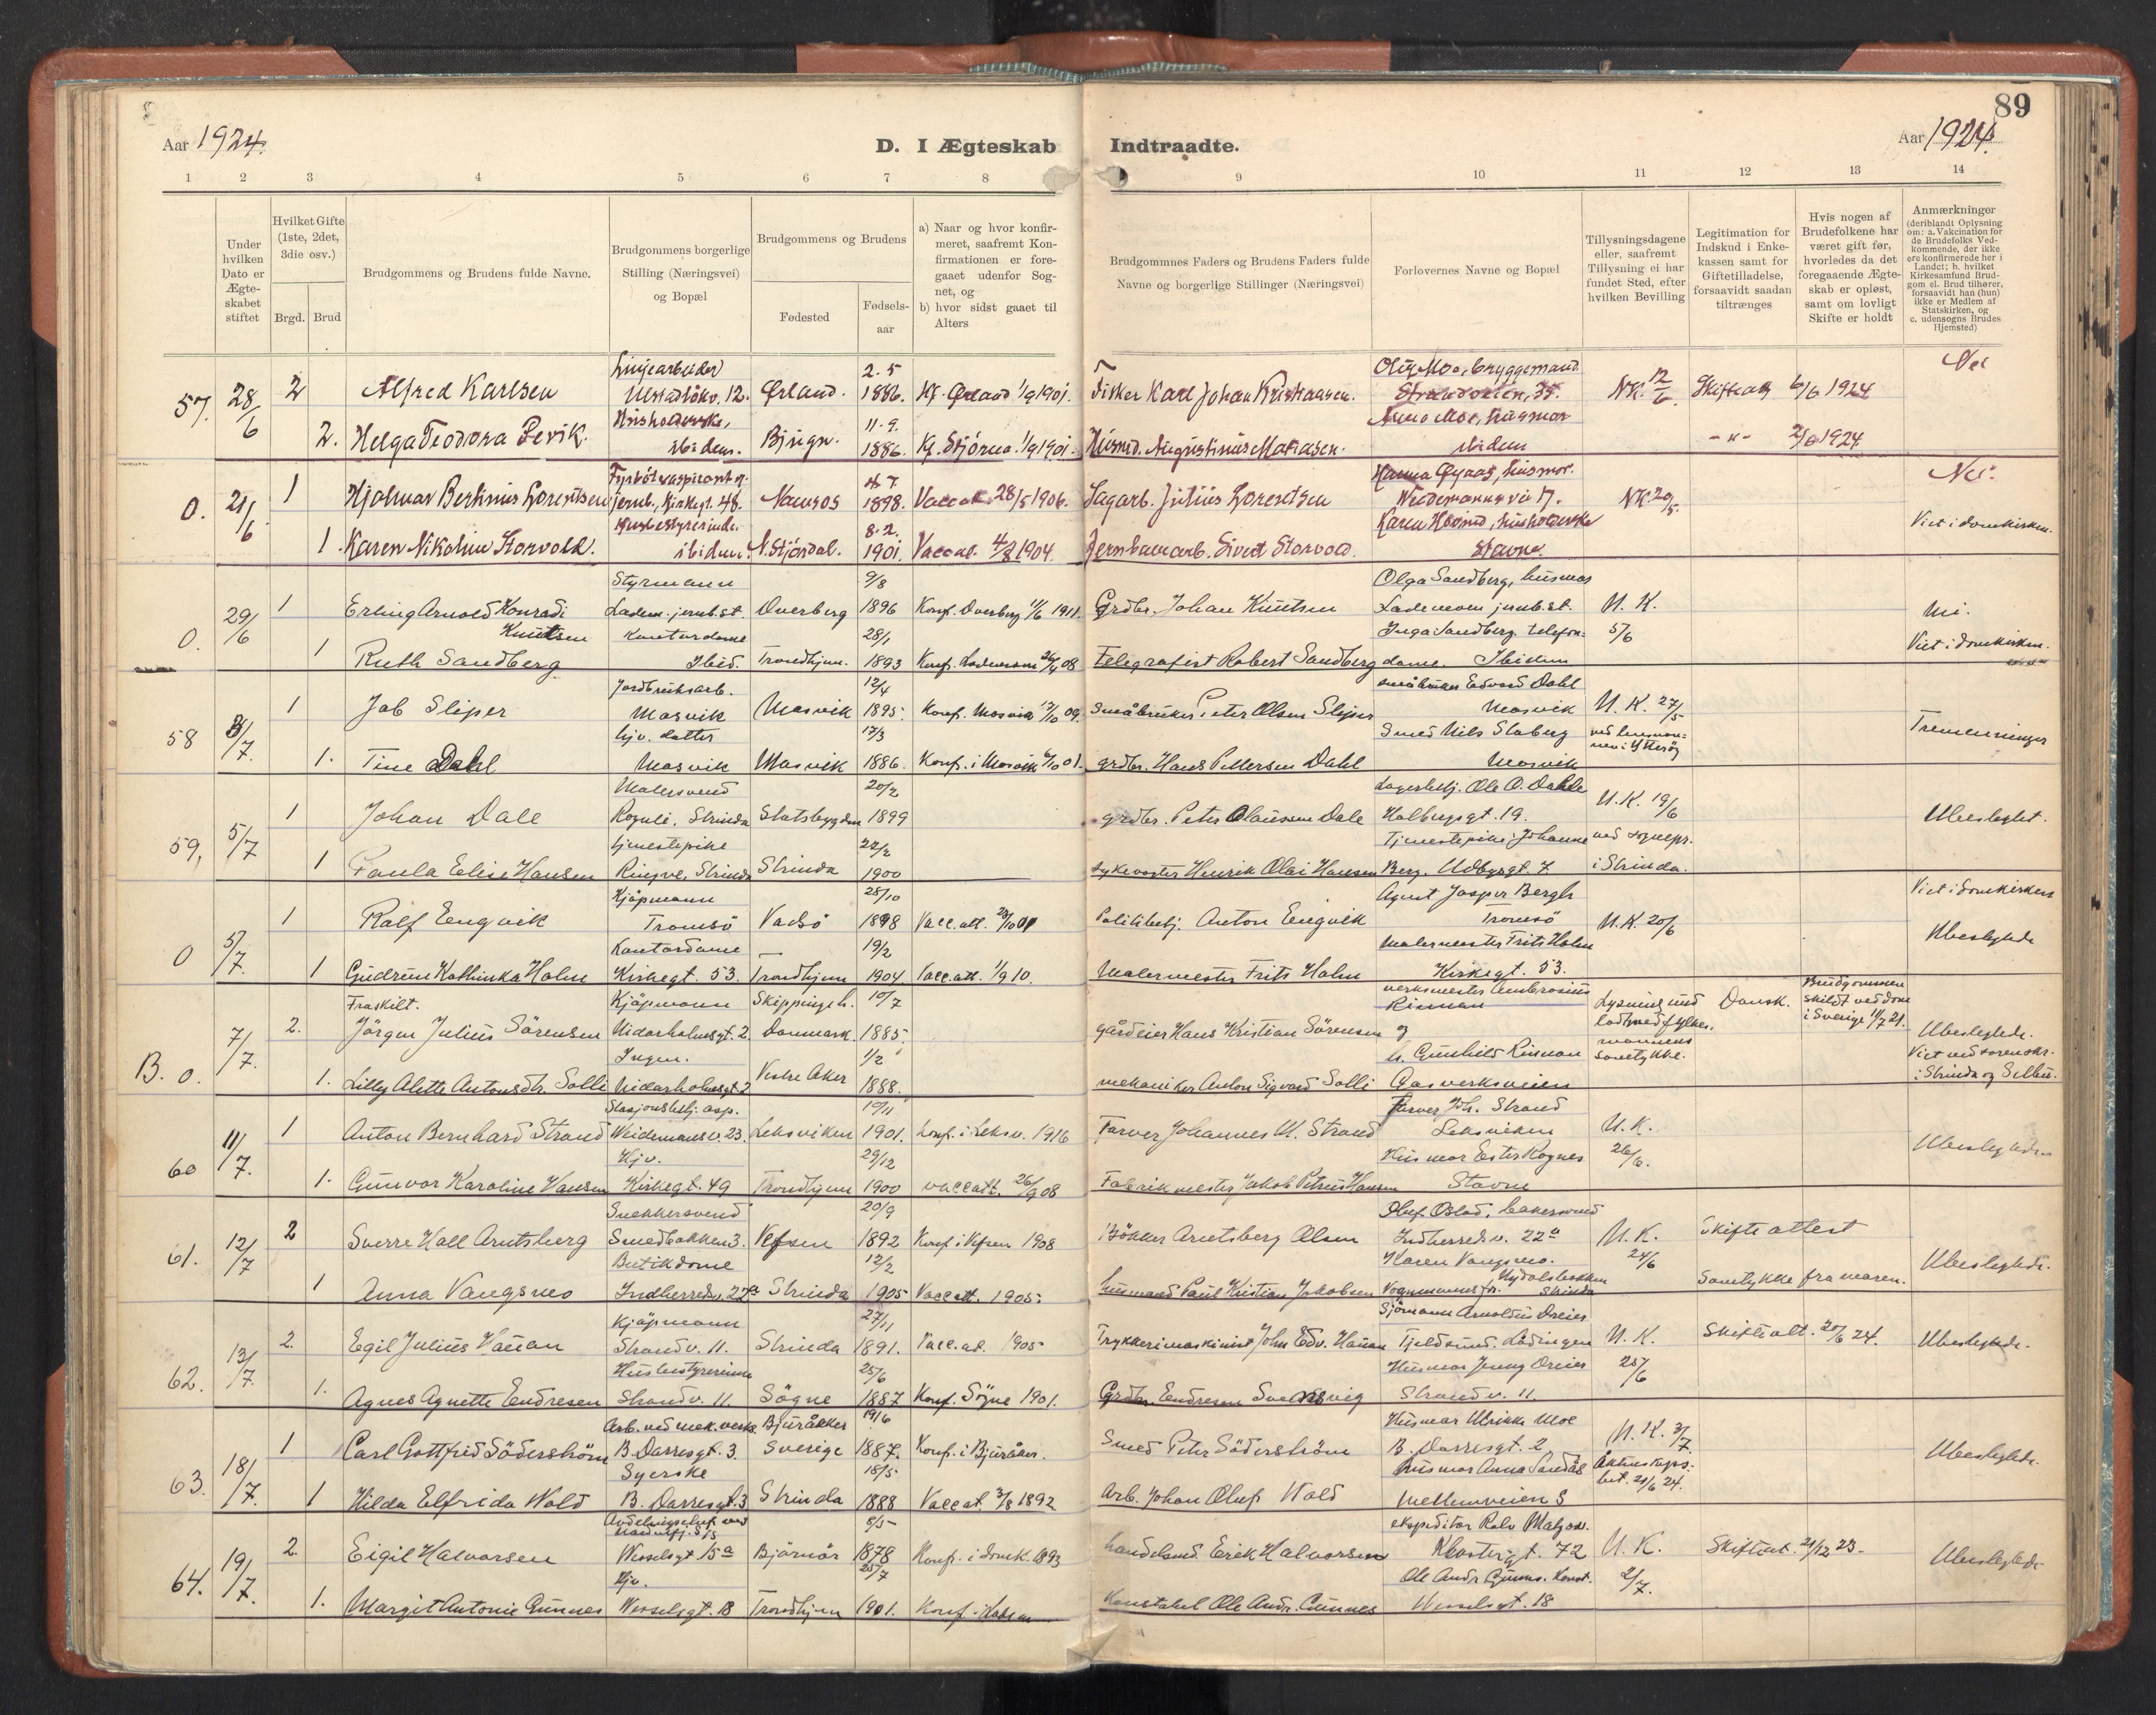 89
Aar 1924.
D. I Ægteskab Indtraadte.
Aar 1924.
1 2 3 4 5 6 7 8 9 10 11 12 13 14
Under hvilken Dato er Ægteskabet stiftet
Hvilket Gifte (1ste, 2det, 3die osv.)
Brgd. Brud
Brudgommens og Brudens fulde Navne.
Brudgommens borgerlige Stilling (Næringsvei) og Bopæl
Brudgommens og Brudens
Fødested
Fødselsaar
a) Naar og hvor konfirmeret, saafremt Konfirmationen er foregaaet udenfor Sognet, og
b) hvor sidst gaaet til Alters
Brudgommnes Faders og Brudens Faders fulde Navne og borgerlige Stillinger (Næringsvei)
Forlovernes Navne og Bopæl
Tillysningsdagene eller, saafremt Tillysning ei har fundet Sted, efter hvilken Bevilling
Legitimation for Indskud i Enkekassen samt for Giftetilladelse, forsaavidt saadan tiltrænges
Hvis nogen af Brudefolkene har været gift før, hvorledes da det foregaaende Ægteskab er opløst, samt om lovligt Skifte er holdt
Anmærkninger (deriblandt Oplysning om: a. Vakcination for de Brudefolks Vedkommende, der ikke ere konfirmerede her i Landet; b. hvilket Kirkesamfund Brudgom el. Brud tilhører, forsaavidt han (hun) ikke er Medlem af Statskirken, og c. udensogns Brudes Hjemsted)
57. 28/6 2 Alfred Karlsen Linjearbeider 12. Ørland. 2.5 1886. Kf. Ørland 1/9 1901. Fisker Karl Johan Kristiansen. Olaf Moe, bryggemand Strandveien, 35. NK. 12/6 Skifteatt 6/6 1924 Nei
2. Helga Teodora Bjugn. 11-9. 1886. Kf. Stjørna 1/9 1901. Husmd. Augustinus Matiasen. Moe, husmor ibidem -"- 1924
0. 21/6 1 Hjalmar Bertinus Lorentsen jernb., Kirkegt. 48. Namsos 4.7 1898. Vaccat. 28/5 1906. Sagarb. Julius Lorentsen Hanna husmor. Weidemannsvei 17. NK 20/5. Nei.
1. Karen Nikoline Storvold. Husbestyrerinde. ibidem. N. Stjørdal. 8.2. 1901. Vaccat. 4/8 1904. Jernbanearb. Sivert Storvold. Karen husholderske Stavne. Viet i domkirken.
0. 29/6 1 Erling Arnold Konradi Knutsen Styrmann Ladem. jernb.st. Overberg 9/8 1896 Konf. Overberg 11/6 1911. Grdbr. Johan Knutsen Olga Sandberg, husmor Lademoen jernb.st. U. K. 5/6 Nei.
1 Ruth Sandberg Kontordame Ibid. Trondhjem. 28/1 1893 Konf. Lademoen 26/4 08 Telegrafist Robert Sandberg Inga Sandberg, telefondame. Ibidem Viet i domkirken.
58 3/7. 1 Job Sliper Jordbruksarb. Mosvik Mosvik 12/4 1895. Konf. Mosvik 17/10 09. Småbruker Peter Olsen Sliper småbruker Edvard Dahl Mosvik U. K. 27/5 ved i Ytterøy Tremenninger
1. Tine Dahl hjv. datter Mosvik Mosvik 17/3 1886. Konf. i Mosvik 6/10 01. grdbr. Hans Pettersen Dahl Smed Nils Staberg Mosvik
59, 5/7 1 Johan Dale Malersvend Strinda Stadsbygden 20/2 1899 grdbr. Peter Olaussen Dale Lagerbetj. Ole O. Dahle Holbergsgt. 19. U. K. 19/6 ved sognepr. i Strinda. Ubeslegtet.
1 Paula Elise Hansen tjenestepike Ringve, Strinda Strinda 22/2 1900 Henrik Olai Hansen Tjenestepike Johanne Berg, Udbygt. 7
0 5/7. 1 Rolf Engvik Kjøpmann Tromsö Vadsö 28/10 1898 Vacc.att. Politibetj. Anton Engvik Agent Jasper Bergh Tromsö U. K. 20/6 Viet i domkirken Ubeslegtede
1 Gudrun Kathinka Holm Kontordame Kirkegt. 53. Trondhjem 19/2 1904. Vacc.att. 1/9 10. Malermester Frits Holm Malermester Frits Holm Kirkegt. 53.
B. 0. 7/7. 2. Fraskilt. Jörgen Julius Sörensen Kjøpmann Nidarholmsgt. 2 Skippinge h. Danmark. 10/7 1885. gårdeier Hans Kristian Sörensen verksmester Ambrosius Risman og Lysning und samtykke. Dansk. Brudgommen skildt ved dom i Sverige 11/7 21. Ubeslegtede.
1. Lilly Alette Antonsdtr. Solli Ingen. Nidarholmsgt. 2 Vestre Aker 1/2 1888. mekaniker Anton Sigvard Solli Gunhild Risman Gasverksveien Viet ved sorenskr. i Strinda og Selbu.
60 11/7. 1 Anton Bernhard Strand Stasjonsbetj. asp. Weidemansv. 23. Leksviken 10/11 1901. konf. i Leksv. 1916 Farver Johannes M. Strand Farver Joh. Strand Leksviken U. K. 26/6. Ubeslegtede.
1. Gunvor Karoline Hansen Hjv. Kirkegt. 49 Trondhjem 29/12 1900 vaccatt. 26/9 08 Fabrikmester Jakob Petrus Hansen Husmor Ester Rognes Stavne
61. 12/7 2 Sverre Hall Arntsberg Snekkersvend Smedbakken 3. Vefsen 20/9 1892 Konf. i Vefsen 1908 Bökker Arntsberg Olsen Oluf Oslad, bakersvend Indherredsv. 22a U. K. 24/6 Skifteattest Ubeslegtede.
1 Anna Vangsmo Butikdame Indherredsv. 22a Strinda 12/2 1905 Vaccatt. 1905. husmand Paul Kristian Jakobsen Karen Vangsmo. Strinda Samtykke fra moren.
62. 13/7. 2. Egil Julius Hanan Kjøpmann Strandv. 11. Strinda 27/11 1891. Vacc.at. 1905 Trykkerimaskinist John Edv. Hanan Sjömann Arnoldus Dreier Tjeldsund. Lödingen U. K. 25/6 Skifteatt. 20/6 24. Ubeslegtede.
1. Agnes Agnette Endresen Husbestyrerinne Strandv. 11. Sögne 25/6 1887 Konf. Sögne 1901. Grdbr. Endresen Husmor Jenny Dreier Strandv. 11
63. 18/7. 1 Carl Gottfrid Söderström Arb. ved mek. verks. B. Darresgt. 3 Bjuråker Sverige 19/6 1887. Konf. i Bjuråker. Smed Petr Söderström Husmor Ulrikke Moe B. Darresgt. 2 U. K. 3/7. Ubeslegtede.
1 Hilda Elfrida Wold Syerske B. Darresgt. 3 Strinda 18/5 1888 Vaccat. 3/8 1892 Arb. Johan Oluf Wold husmor Anna Sandås Mellemveien 5 21/6 24.
64. 19/7. 2. Eigil Halvorsen Wesselsgt 15a Björnör 8/5 1878 Konf. i domk. 1893 handelsmd. Erik Halvorsen ekspeditör Rolv Klostergt. 72 U. K. 2/7. Skifteat. 21/12 23. Ubeslegtede
1. Margit Antonie Gunnes Hjv. Wesselsgt. 18 Trondhjem 25/7 1901. Konf. i Konstabel Ole Andr. Gunnes Ole Andr. Gunnes. Konst. Wesselsgt. 18